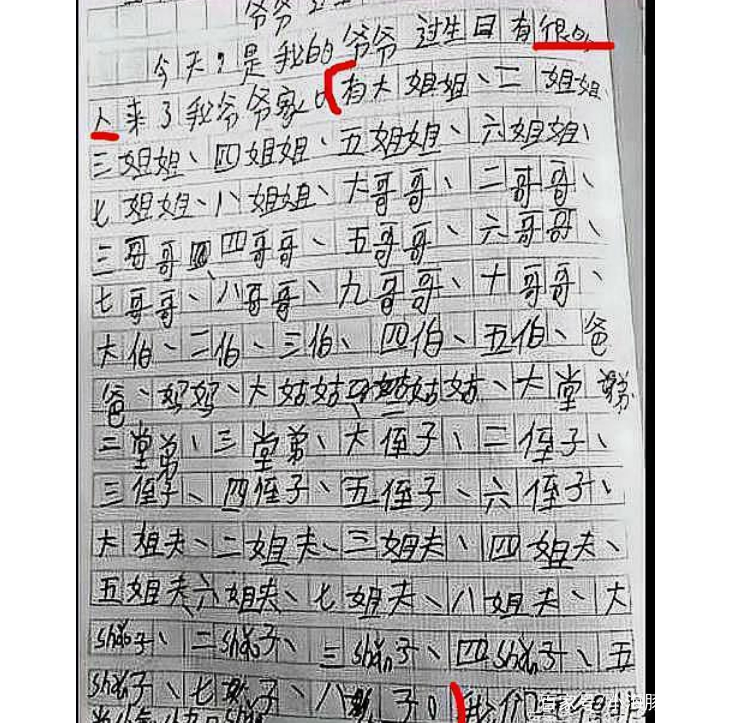 爷爷
今天,是我的爷爷过生日有很多
人来了我爷爷家,有大姐姐、二姐姐、
三姐姐、四姐姐、五姐姐、六姐姐、
七姐姐、八姐姐、大哥哥、二哥哥、
三哥哥、四哥哥、五哥哥、六哥哥、
七哥哥、八哥哥、九哥哥、十哥哥、
大伯、二伯、三伯、四伯、五伯、爸
爸、妈妈、大姑姑、二姑姑、大堂弟、
二堂弟、三堂弟、大侄子、二侄子、
三侄子、四侄子、五侄子、六侄子、
大姐夫、二姐夫、三姐夫、四姐夫、
五姐夫、六姐夫、七姐夫、八姐夫、大
shǎo子、二shǎo子、三shǎo子、四shǎo子、五
shǎo子、七子、八子。我们
百家号